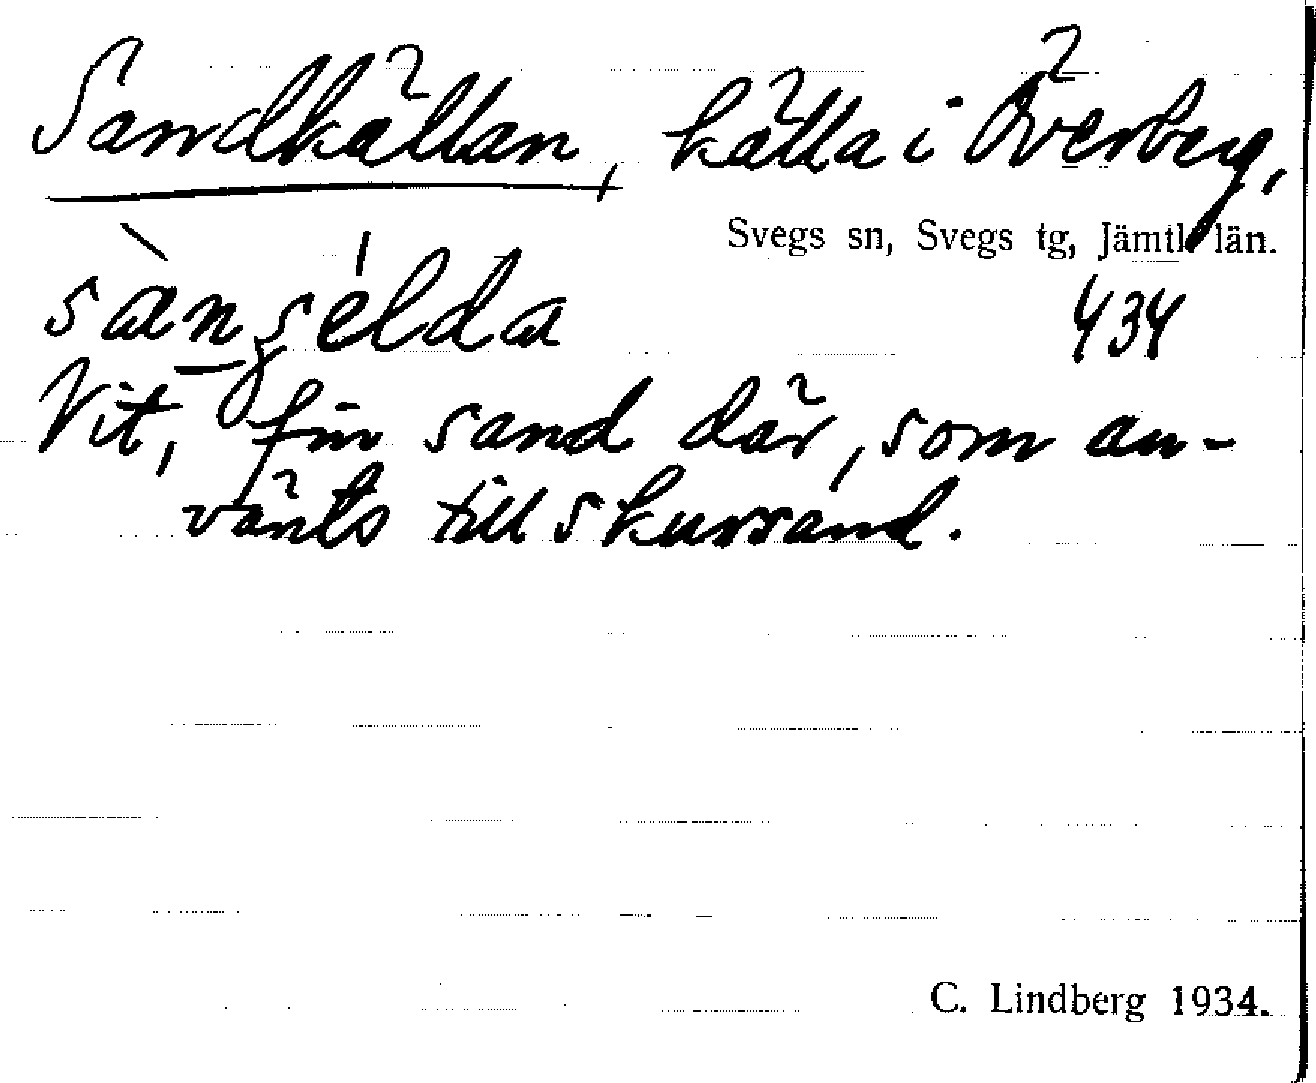 Sandkällan, källa i Överberg,
Svegs sn, Svegs tg, Jämtl län.
434
Vit, fin sand där, som an-
vänts till skursand.
C. Lindberg 1934.